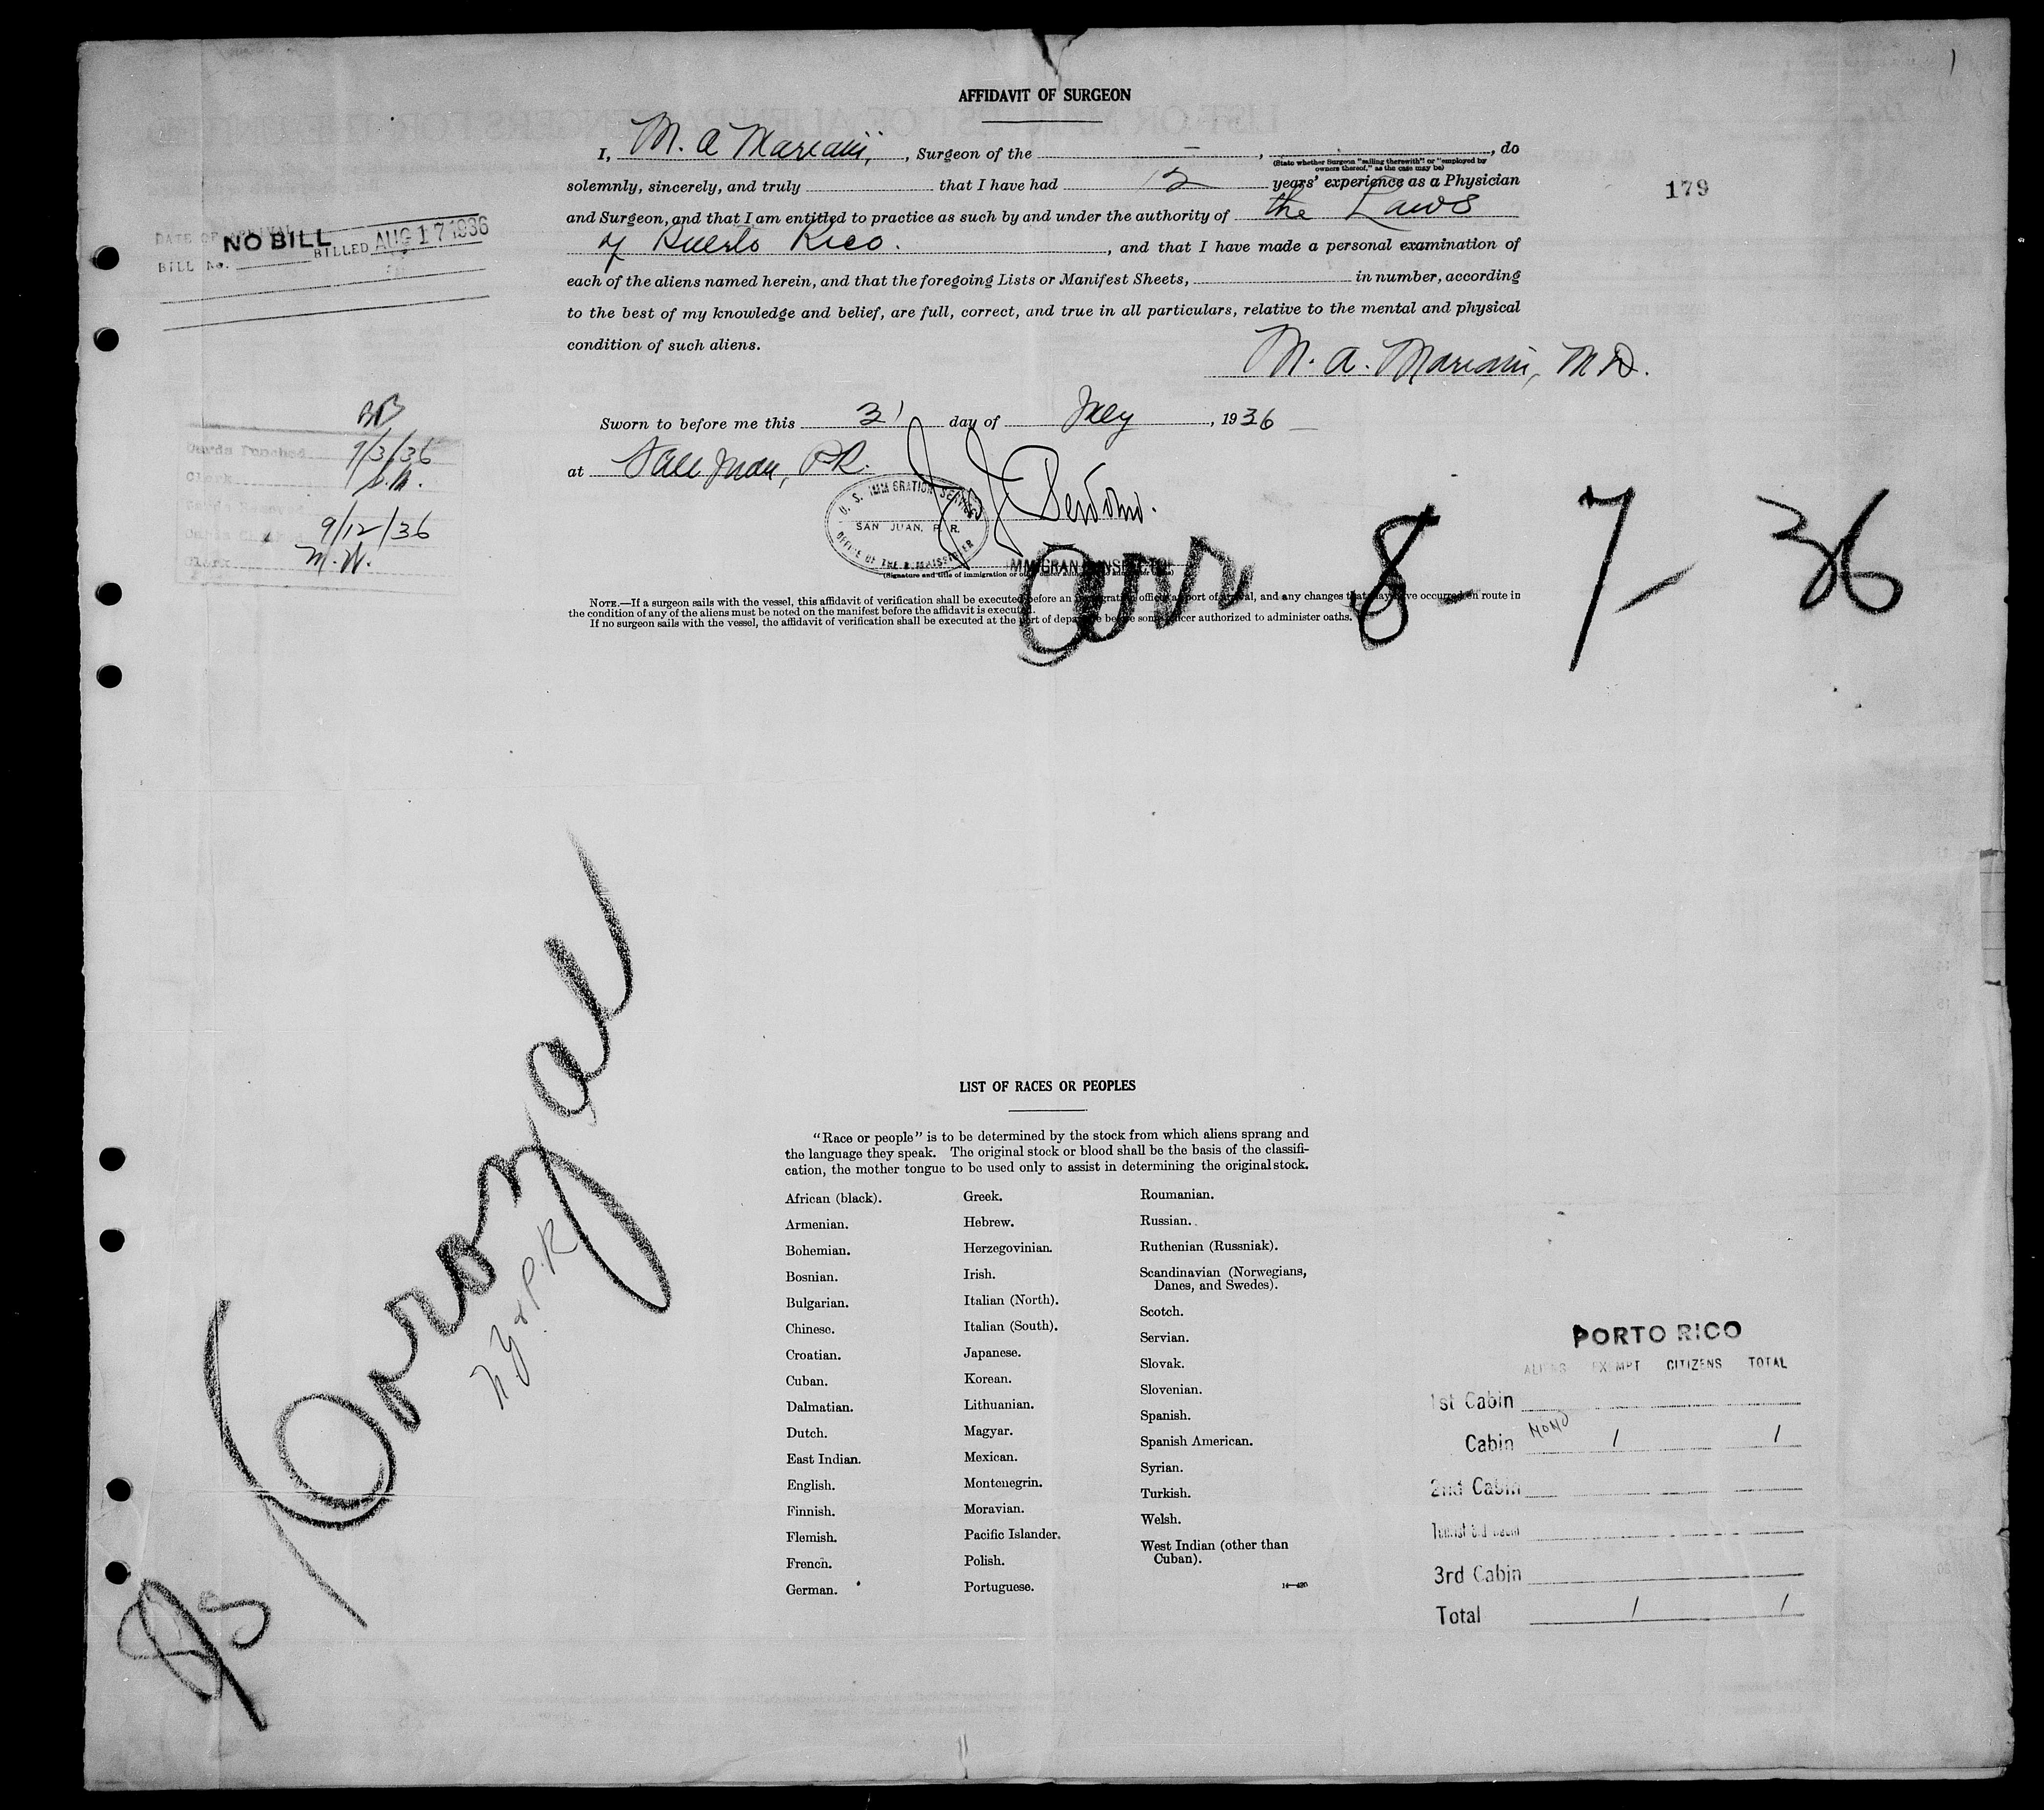 AFFIDAVIT OF SURGEON
I, M. A. Mariani, , Surgeon of the — , , do
(State whether Surgeon "sailing therewith" or "employed by
owners thereof," as the case may be)
solemnly, sincerely, and truly that I have had 12 years' experience as a Physician
179
and Surgeon, and that I am entitled to practice as such by and under the authority of the Laws
of Puerto Rico. , and that I have made a personal examination of
each of the aliens named herein, and that the foregoing Lists or Manifest Sheets, in number, according
to the best of my knowledge and belief, are full, correct, and true in all particulars, relative to the mental and physical
condition of such aliens.
M. A. Mariani, M.D.
DATE OF ARRIVAL
NO BILL
BILL No. BILLED AUG 17 1936
BB
Cards Punched 9/3/36
Clerk
9/12/36
Clerk M. W.
Sworn to before me this 31 day of July , 1936
at San Juan, P.R.
U. S. IMMIGRATION SERVICE
SAN JUAN, P. R.
OFFICE OF THE
IMMIGRANT INSPECTOR
(Signature and title of immigration or
Arr 8 - 7 - 36
NOTE.—If a surgeon sails with the vessel, this affidavit of verification shall be executed before an immigration officer at port of arrival, and any changes that may have occurred en route in
the condition of any of the aliens must be noted on the manifest before the affidavit is executed.
If no surgeon sails with the vessel, the affidavit of verification shall be executed at the port of departure before some officer authorized to administer oaths.
SS Corozal
N.Y. & P.R.
LIST OF RACES OR PEOPLES
"Race or people" is to be determined by the stock from which aliens sprang and
the language they speak. The original stock or blood shall be the basis of the classifi-
cation, the mother tongue to be used only to assist in determining the original stock.
African (black).
Armenian.
Bohemian.
Bosnian.
Bulgarian.
Chinese.
Croatian.
Cuban.
Dalmatian.
Dutch.
East Indian.
English.
Finnish.
Flemish.
French.
German.
Greek.
Hebrew.
Herzegovinian.
Irish.
Italian (North).
Italian (South).
Japanese.
Korean.
Lithuanian.
Magyar.
Mexican.
Montenegrin.
Moravian.
Pacific Islander.
Polish.
Portuguese.
Roumanian.
Russian.
Ruthenian (Russniak).
Scandinavian (Norwegians,
Danes, and Swedes).
Scotch.
Servian.
Slovak.
Slovenian.
Spanish.
Spanish American.
Syrian.
Turkish.
Welsh.
West Indian (other than
Cuban).
PORTO RICO
ALIENS EXEMPT CITIZENS TOTAL
1st Cabin
Cabin 1 1
2nd Cabin
Tourist 3rd Cabin
3rd Cabin
Total 1 1